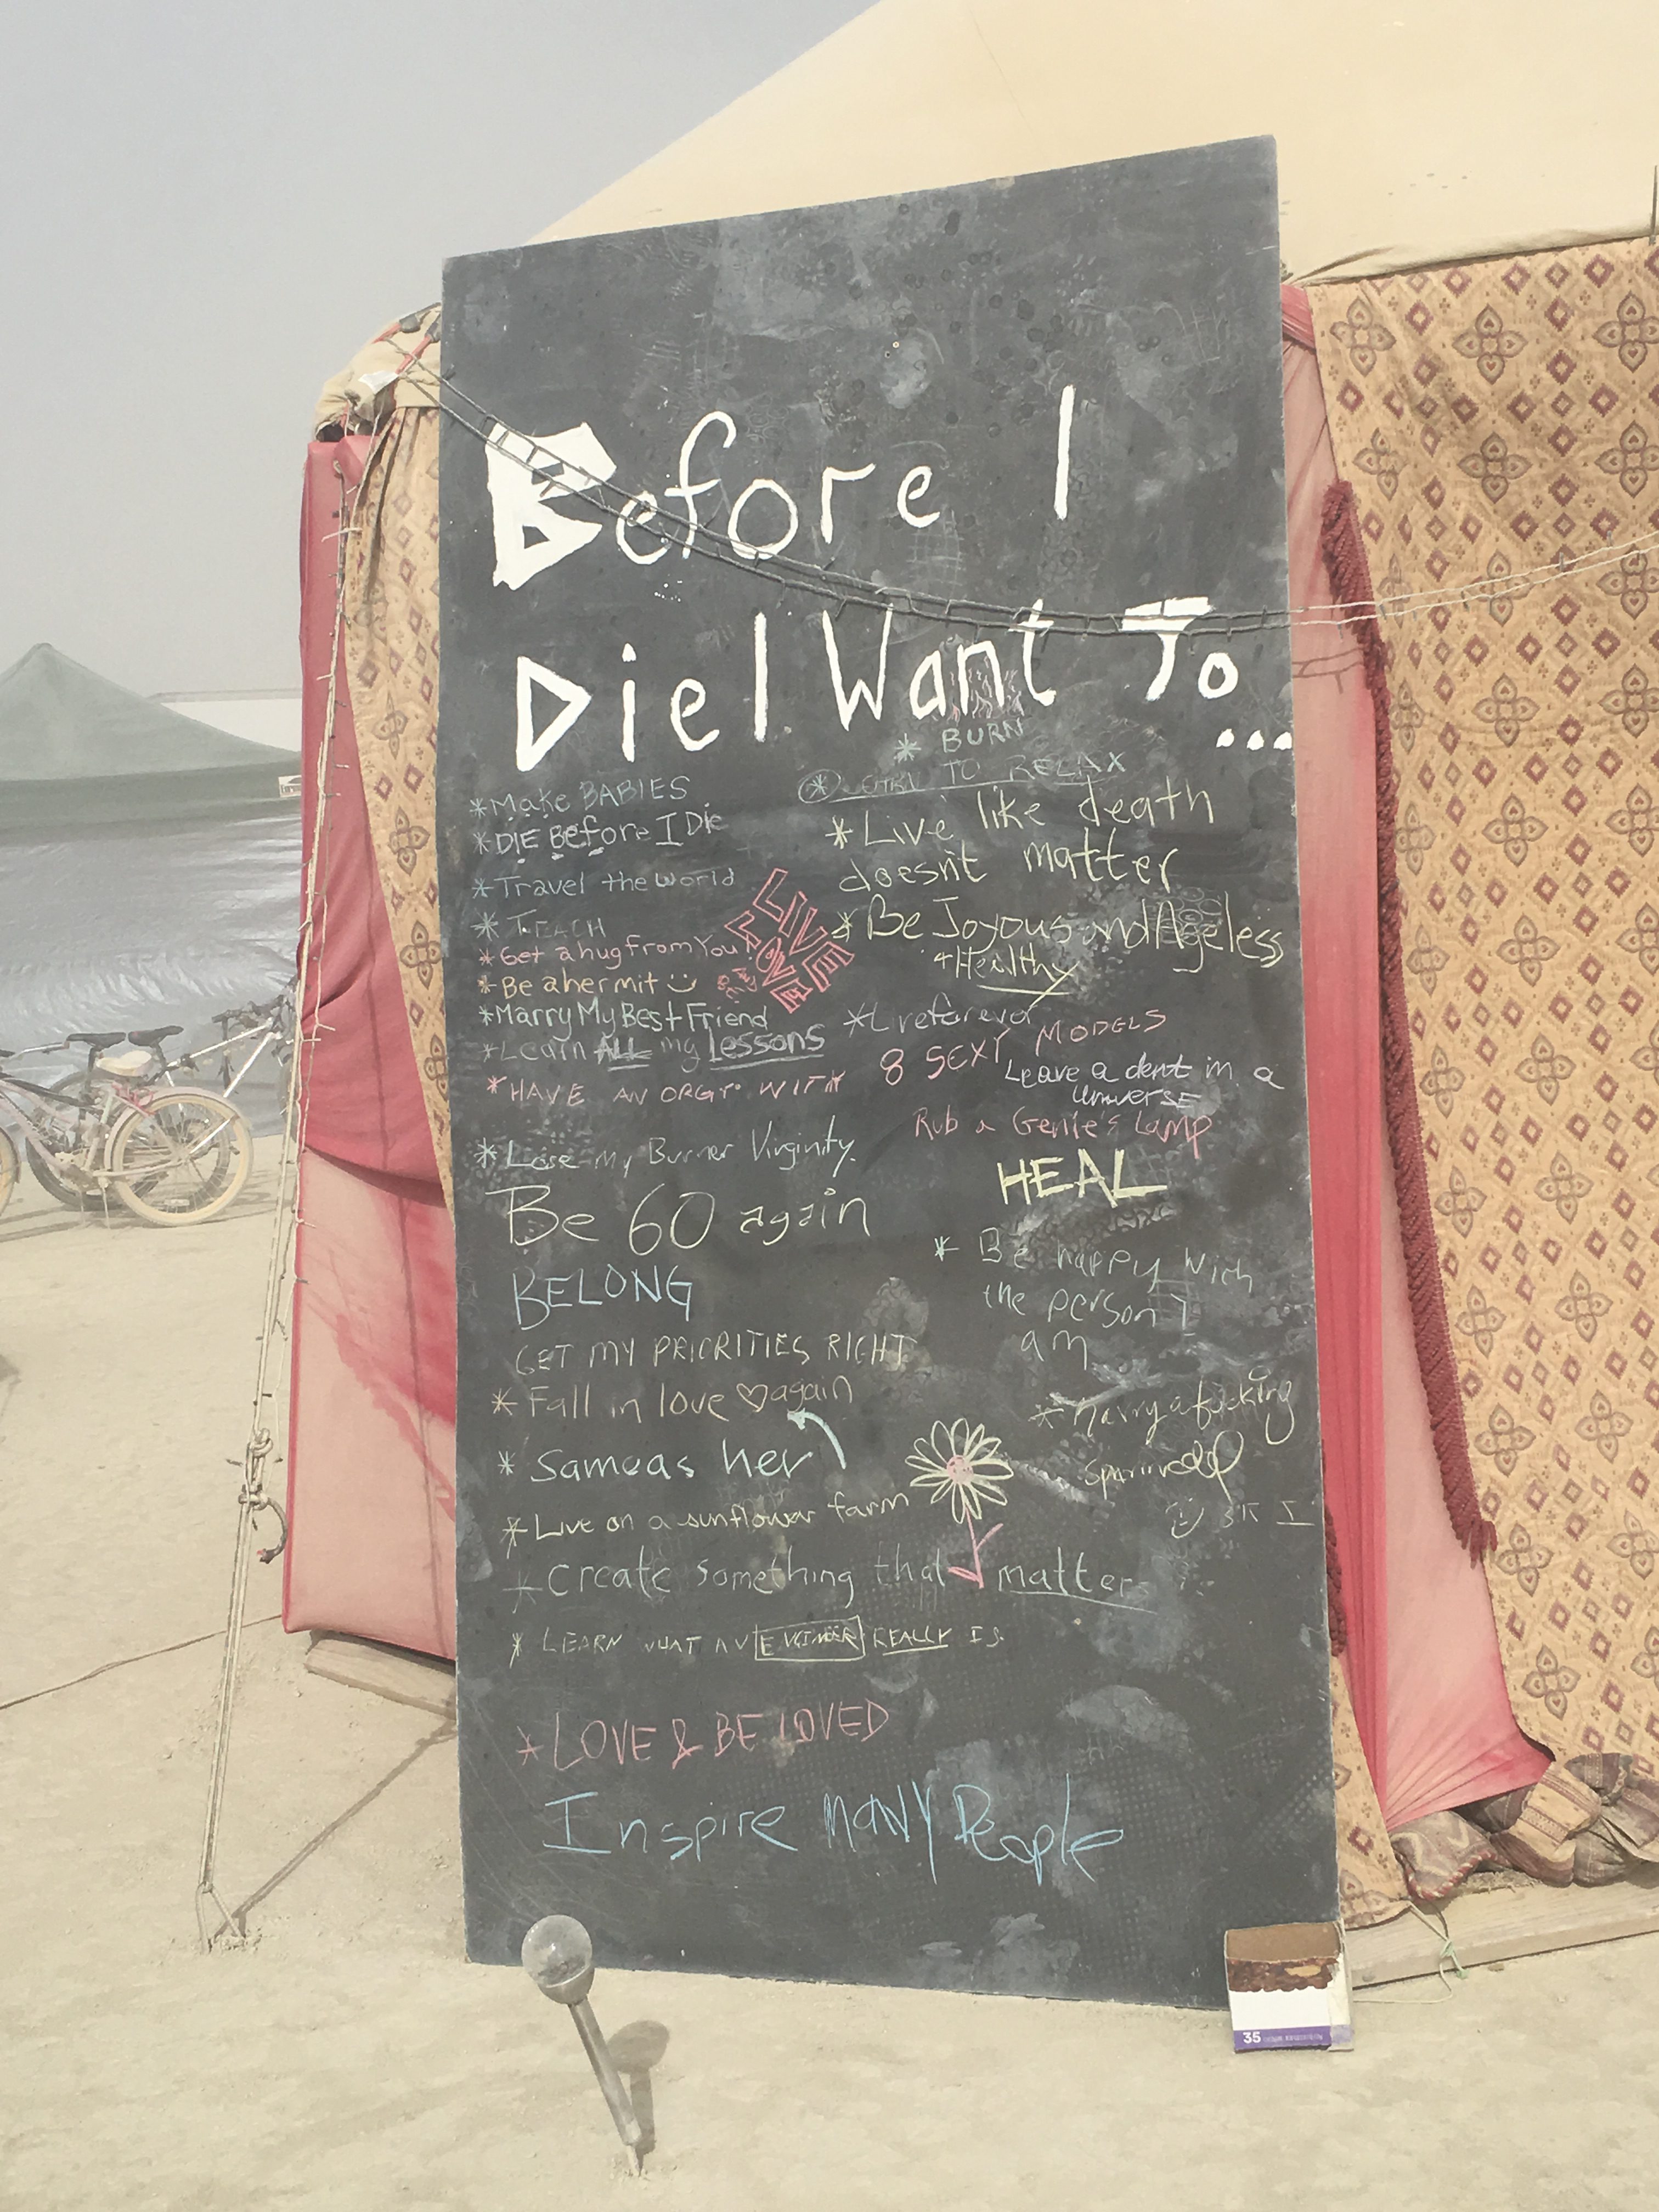 Before I
Die I Want To...
* BURN
TO RELAX
*Make BABIES
*DIE BEfore I Die
*Travel the World
*TEACH
*Get a hug from You!
*Be a hermit
*Marry My Best Friend
*Learn ALL my Lessons
*HAVE AN ORGY WITH 8 SEXY MODELS
LIVE
LOVE
*Live like death
doesn't matter
*Be Joyous and Ageless
+Healthy
*Live forever
Leave a dent in a
Universe
Rub a Genie's Lamp
HEAL
* Be happy with
the person I
am
*Marry a fucking
*Lose my Burner Virginity.
Be 60 again
BELONG
GET MY PRIORITIES RIGHT
*Fall in love ♡ again
*Same as her
*Live on a sunflower farm
*Create something that matters
*LEARN WHAT AN ENGINEER REALLY IS.
*LOVE & BE LOVED
Inspire MANY People
35